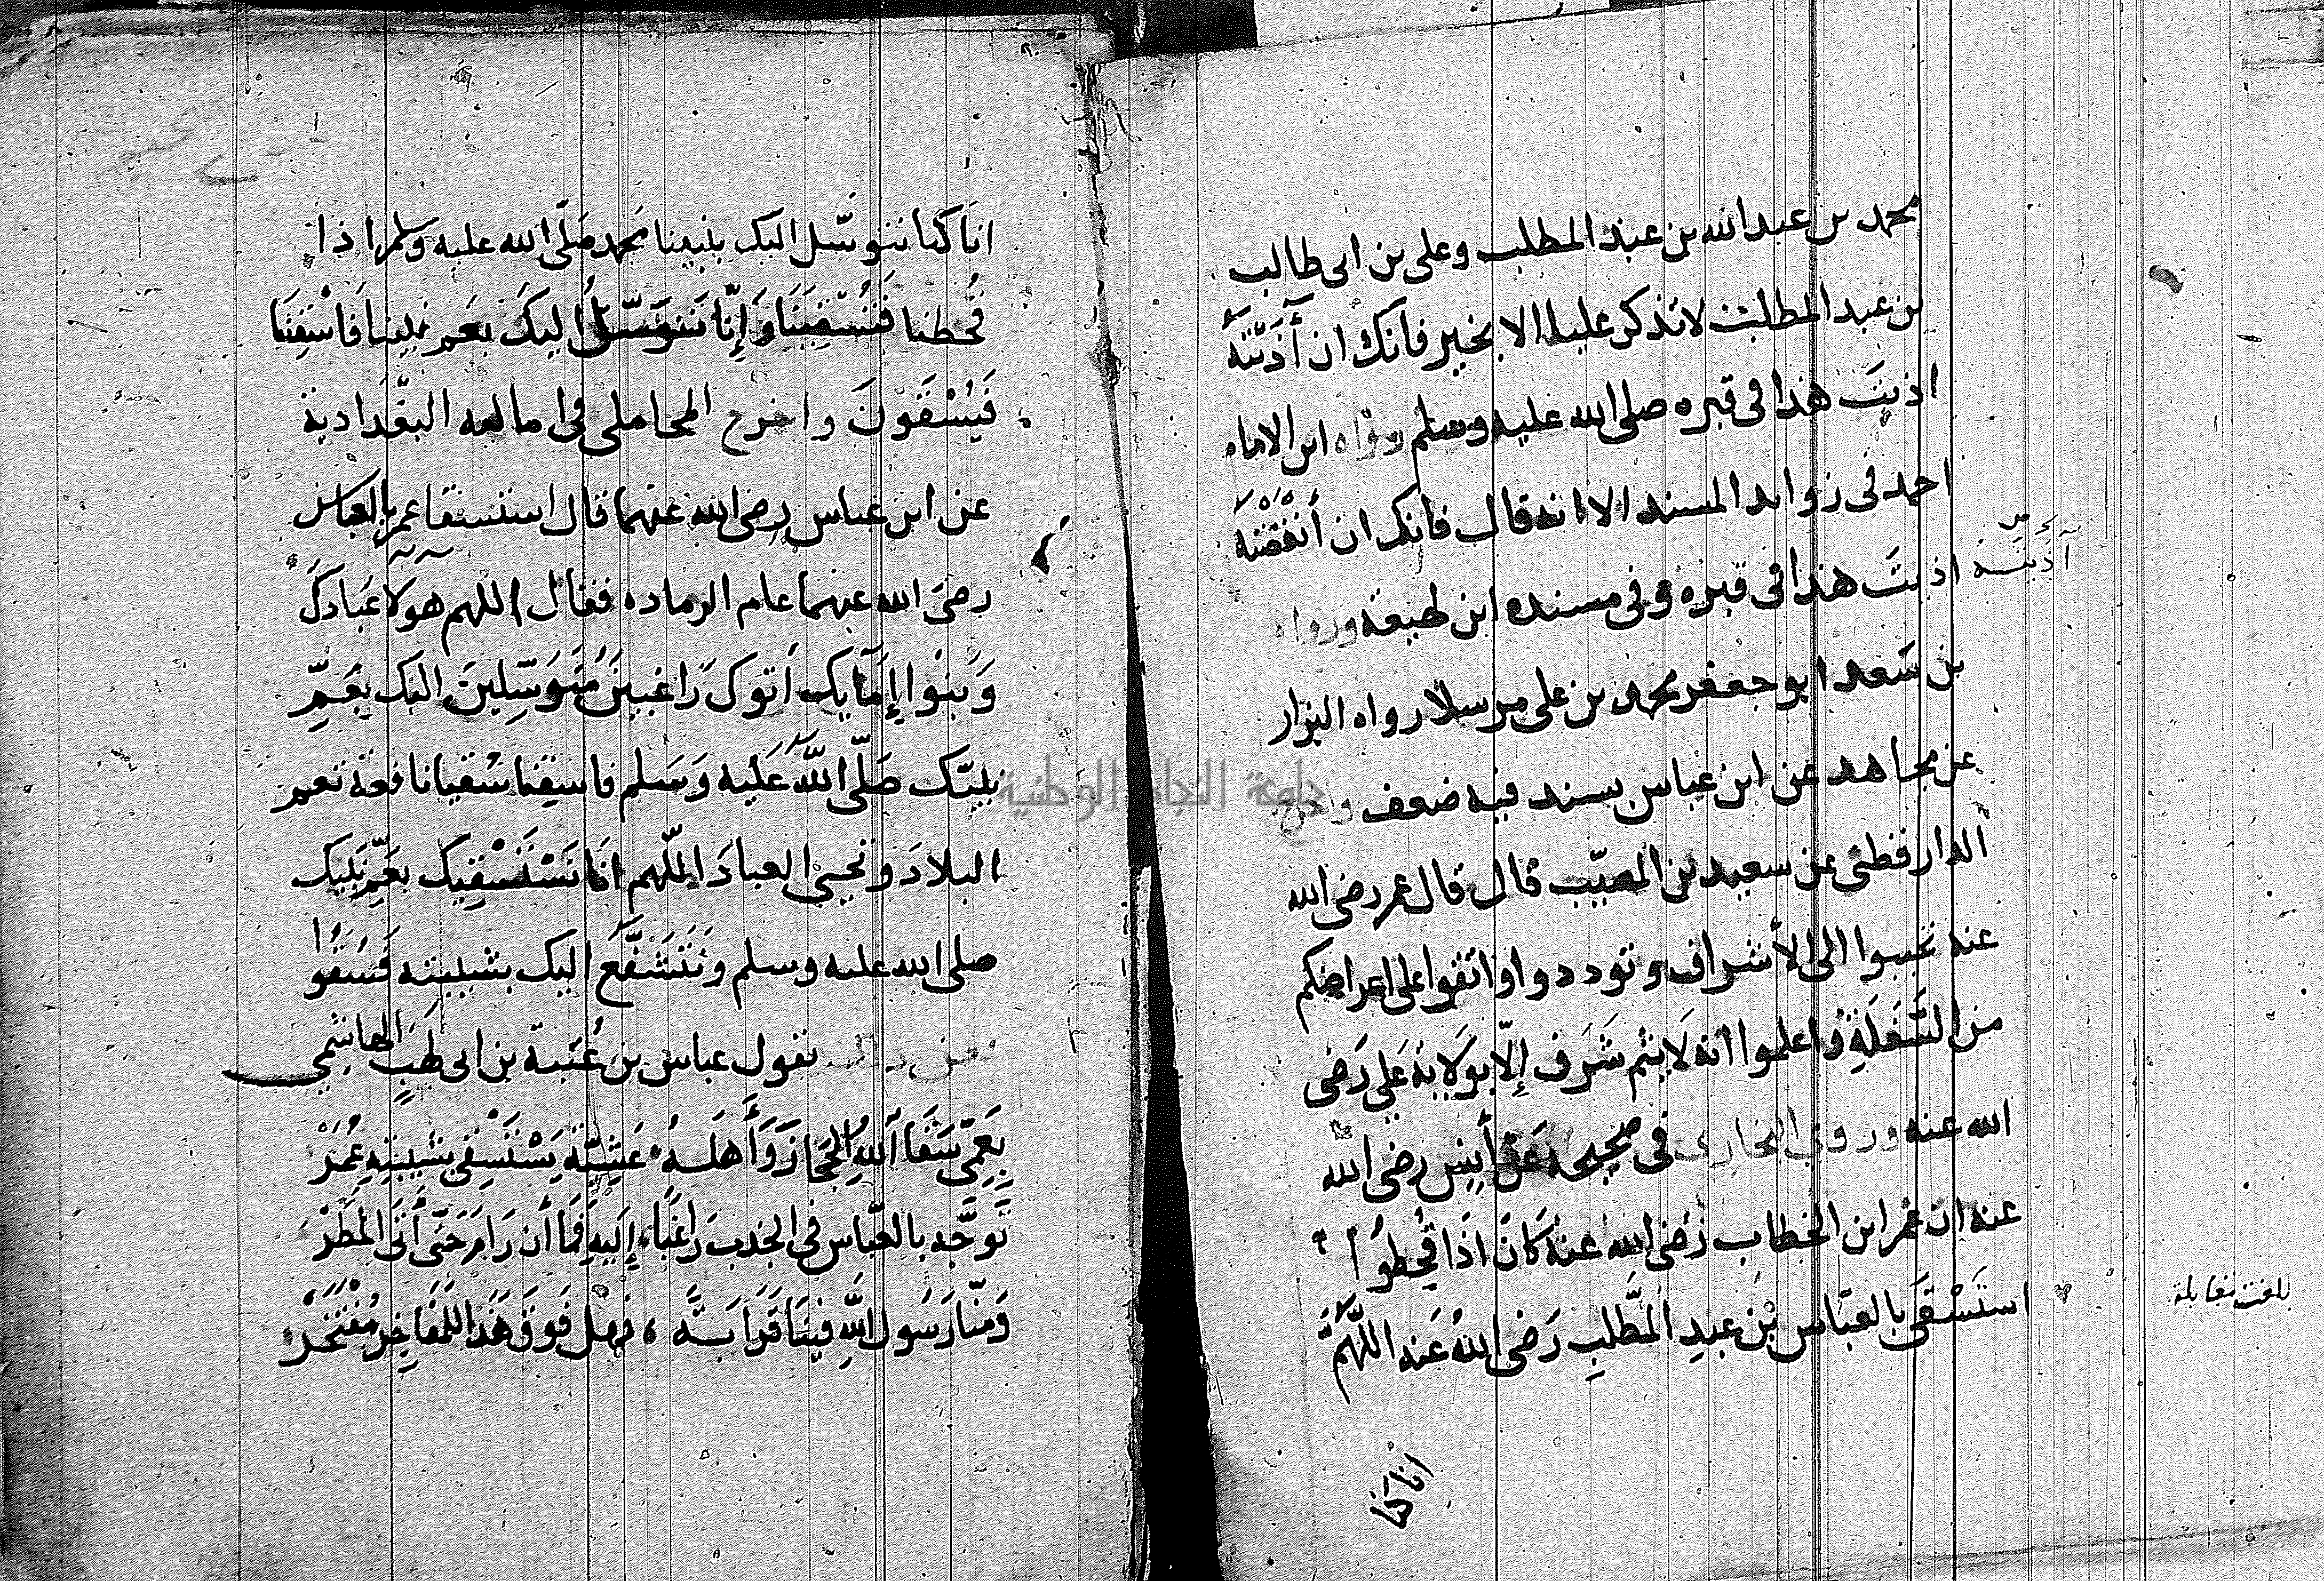 محمد بن عبد الله بن عبد المطلب وعلى بن ابى طالب
بن عبد المطلب لا تذكر عليا الا بخير فانك ان آذيته
اذيت هذا فى قبره صلى الله عليه وسلم رواه ابن الامام
احمد فى زوايد المسند الا انه قال فانك ان أنقصته
آذيته
اذيت هذا فى قبره وفى مسنده ابن لهيعة ورواه
بن سعد ابو جعفر محمد بن على مرسلا رواه البزار
عن مجاهد عن ابن عباس بسند فيه ضعف
الدار قطنى عن سعيد بن المسيّب قال قال عمر رضى الله
عنه تحببوا الى الأشراف وتوددوا واتقوا على اعراضكم
من السَّفَلَةِ واعلموا انه لا يتم شَرَف إلّا بوَلاية عَلي رَضى
الله عنه وروى البخارى فى صحيحه عَن أنس رضى الله
عنه ان عمر ابن الخطاب رَضى الله عنه كَانَ اذَا قُحِطُوا
استَسْقَى بالعبّاس بْن عبدِ المطَّلبِ رَضى اللهُ عَنه اللَّهُمَّ
انا كنا
بلغت مقابلة
انا كنا نتوسّل اليك بنبينا محمد صَلّى الله عليه وسلم اذا
قُحطنا فَتُسْقِيَنَا وَإِنّا نَتَوَسّلُ اليكَ بعَم نبينا فَاسْقِنَا
فَيُسْقَوْنَ واخرج المحاملى فى اماليه البغدادية
عن ابن عباس رضى الله عنهما قال استسقا عمر بالعباس
رضى الله عنهما عام الرماده فقال اللهم هولا عبادك
وَبَنوا إمَايك أتوك رَاغبينَ مُتَوَسّلِينَ اليك بعَمِّ
نبيّك صَلّى اللهُ عَلَيه وَسَلم فاسقنا سُقيا نافعة تعم
البلادَ وتحيى العبادَ اللّهم انا نَسْتَسْقِيك بعَمِّ نَبيك
صلى الله عليه وسلم ونَتَشَفَّع اليك بشيبته فَسُقُوا
يقول عباس بن عُتبة بن ابى لهَبٍ الهاشمي
بِعَمِّى سَقَا اللهُ الحِجَازَ وَأَهلَهُ عَشِيَّةَ يَسْتَسْقى بشَيبَتِهِ عُمَرْ
تَوَجَّه بالعَبّاس فى الجدب رَاغبًا إليهِ فَمَا أن رَامَ حَتّى أَتَى المَطَرْ
وَمنّا رَسُول اللهِ فينَا قَرَابَةً فهل فَوقَ هَذَا للمُفَاخِر مُفْتَخَرْ